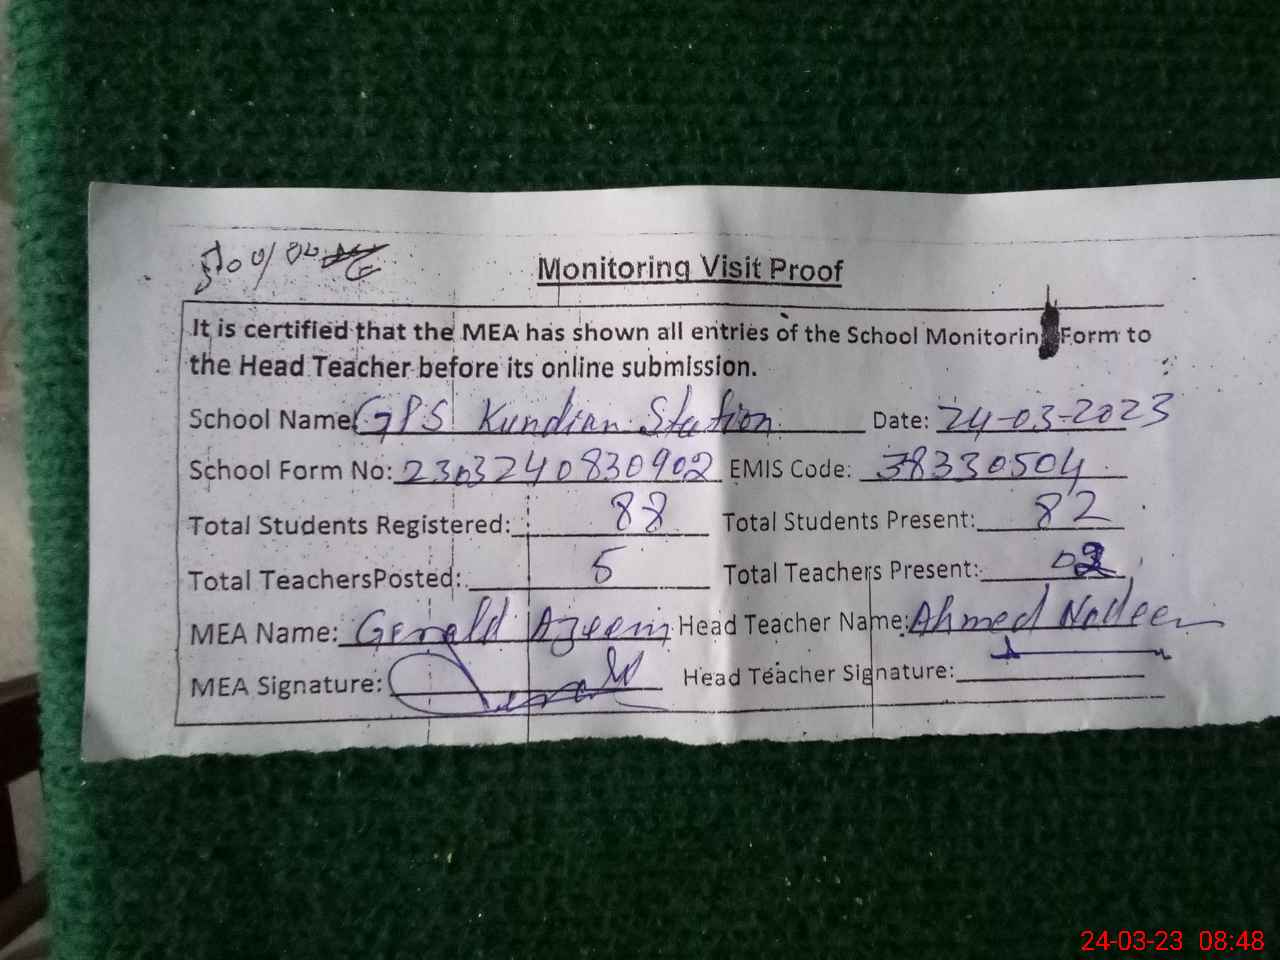 Monitoring Visit Proof
It is certified that the MEA has shown all entries of the School Monitorin Form to
the Head Teacher before its online submission.
School Name: GPS Kundian Station Date: 24-03-2023
School Form No: 2303240830902 EMIS Code: 38330504
Total Students Registered: 88 Total Students Present: 82
Total TeachersPosted: 5 Total Teachers Present:
MEA Name: Gerald Azeem Head Teacher Name: Ahmed Nadeem
MEA Signature: Head Teacher Signature:
24-03-23 08:48